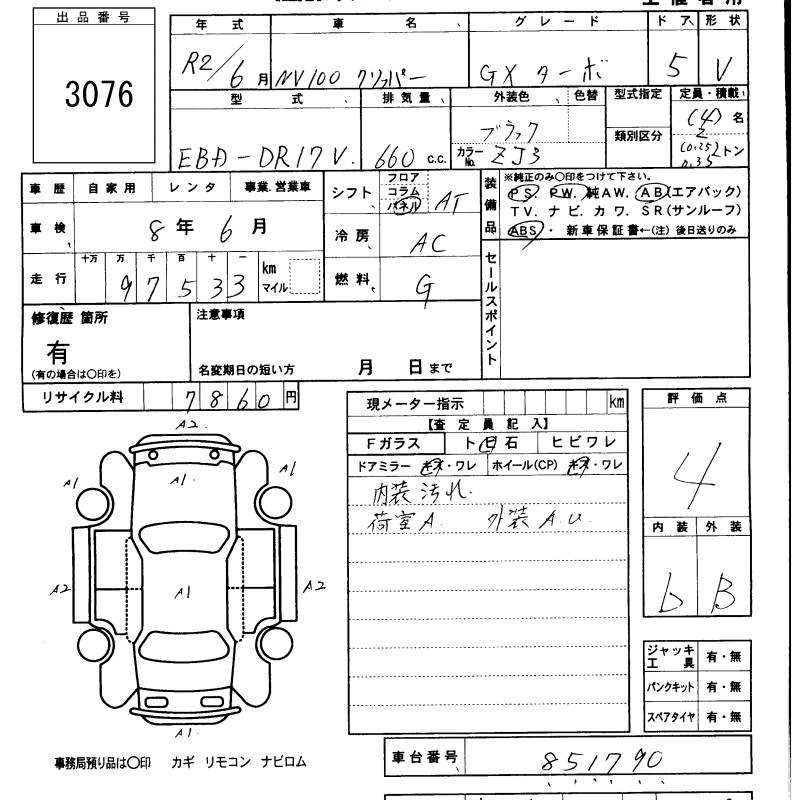 出品番号
3076
年式 車名 グレード ドア 形状
R2/6月 NV100 クリッパー GX ターボ 5 V
型式 排気量 外装色 色替 型式指定 定員・積載
EBD-DR17V 660 c.c. ブラック 類別区分 (4) 名
カラーNo. ZJ3 2
(0.25) トン
0.35
車歴 自家用 レンタ 事業.営業車
車検 8年 6月
走行 十万 万 千 百 十 一 km マイル
97533
シフト フロア コラム パネル AT
冷房 AC
燃料 G
装備品 ※純正のみ○印をつけて下さい。
PS. PW. 純AW. AB(エアバック)
TV. ナビ. カワ. SR(サンルーフ)
ABS・ 新車保証書←(注) 後日送りのみ
セールスポイント
修復歴 箇所
有
(有の場合は○印を)
注意事項
名変期日の短い方 月 日まで
リサイクル料 7860円
現メーター指示 km
【査定員記入】
Fガラス ト日石 ヒビワレ
ドアミラー キズ・ワレ ホイール(CP) キズ・ワレ
内装汚れ.
荷室A. 外装A.U.
評価点
4
内装 外装
b B
ジャッキ工具 有・無
パンクキット 有・無
スペアタイヤ 有・無
A2
A1
A1
A1
A2
A1
A2
A1
事務局預り品は○印 カギ リモコン ナビロム
車台番号 851790